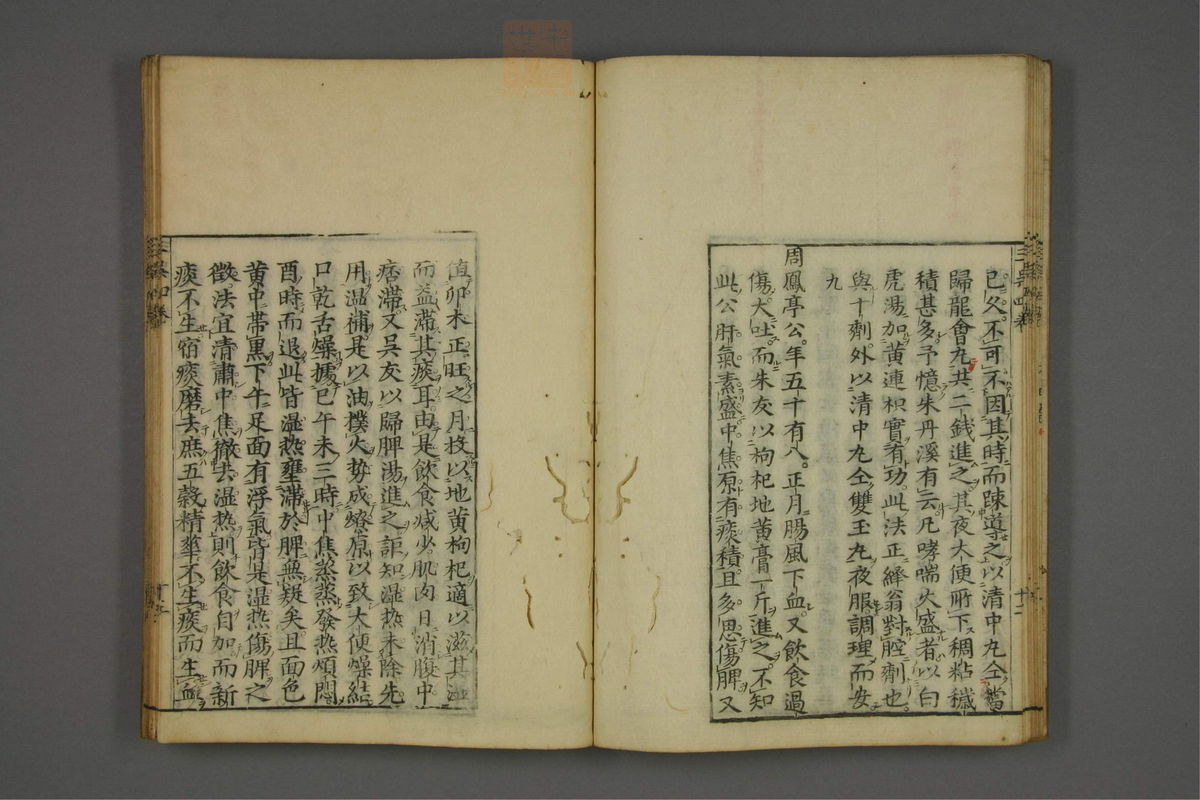 已久不可不因其時而疎導之以清中丸仝當
歸龍會丸共二錢進之其夜大便所下稠粘穢
積甚多予憶朱丹溪有云凡哮喘火盛者以白
虎湯加黄連枳實有功此法正絳翁對腔劑也
與十劑外以清中丸仝雙玉丸夜服調理而安
九
周鳳亭公年五十有八正月腸風下血又飲食過
傷大吐而朱友以枸杞地黄膏一斤進之不知
此公肝氣素盛中焦原有痰積且多思傷脾又
值卯木正旺之月杖以地黄枸杞適以滋其濕
而益滯其痰耳由是飲食減少肌肉日消腹中
痞滯又吳友以歸脾湯進之詎知湿热未除先
用温補是以油樸火势成燎原以致大便燥結
口乾舌燥據巳午未三時中焦蒸蒸發热煩悶
酉時而退此皆湿热壅滯於脾無疑矣且面色
黄中帯黒下午足面有浮氣皆是湿热傷脾之
徴法宜清肅中焦徹去湿热則飲食自加而新
痰不生宿痰磨去庶五穀精華不生痰而生血
三吳四卷
十二